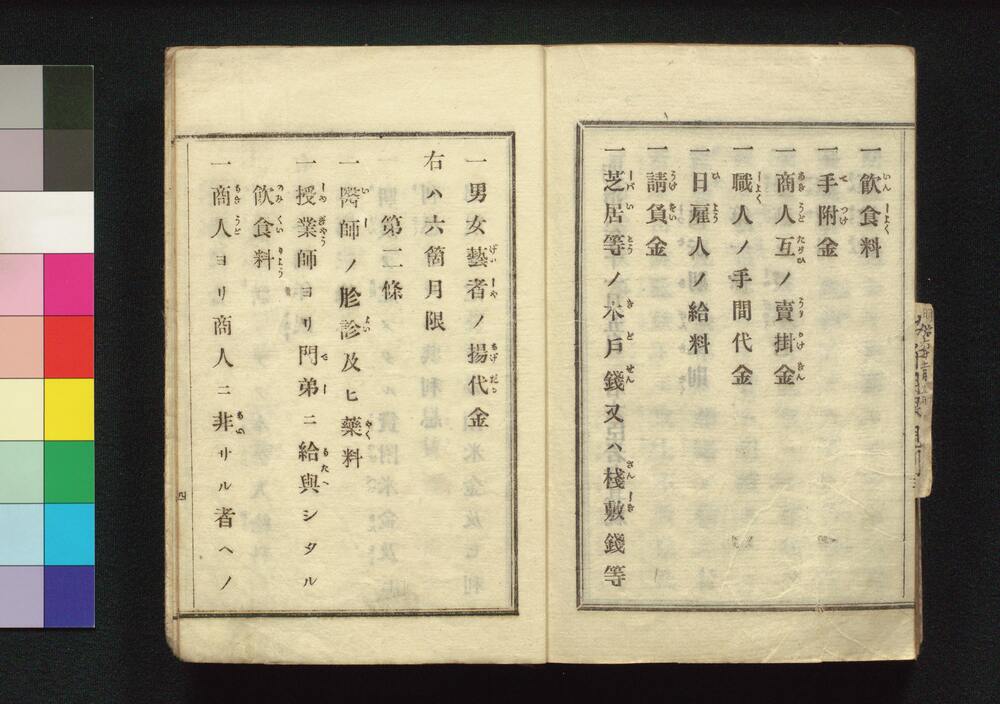 一飲食料
一手附金
一商人互ノ賣掛金
一職人ノ手間代金
一日雇人ノ給料
一請負金
一芝居等ノ木戸錢又ハ棧敷錢等
一男女藝者ノ揚代金
右ハ六箇月限
第二條
一醫師ノ胗診及ヒ藥料
一授業師ヨリ門弟ニ給與シタル
飲食料
一商人ヨリ商人ニ非サル者ヘノ
四